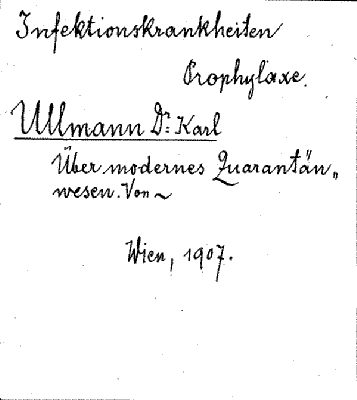 Infektionskrankheiten
Prophylaxe.
Ullmann Dr. Karl
Über modernes Quarantän„
wesen. Von ~
Wien, 1907.